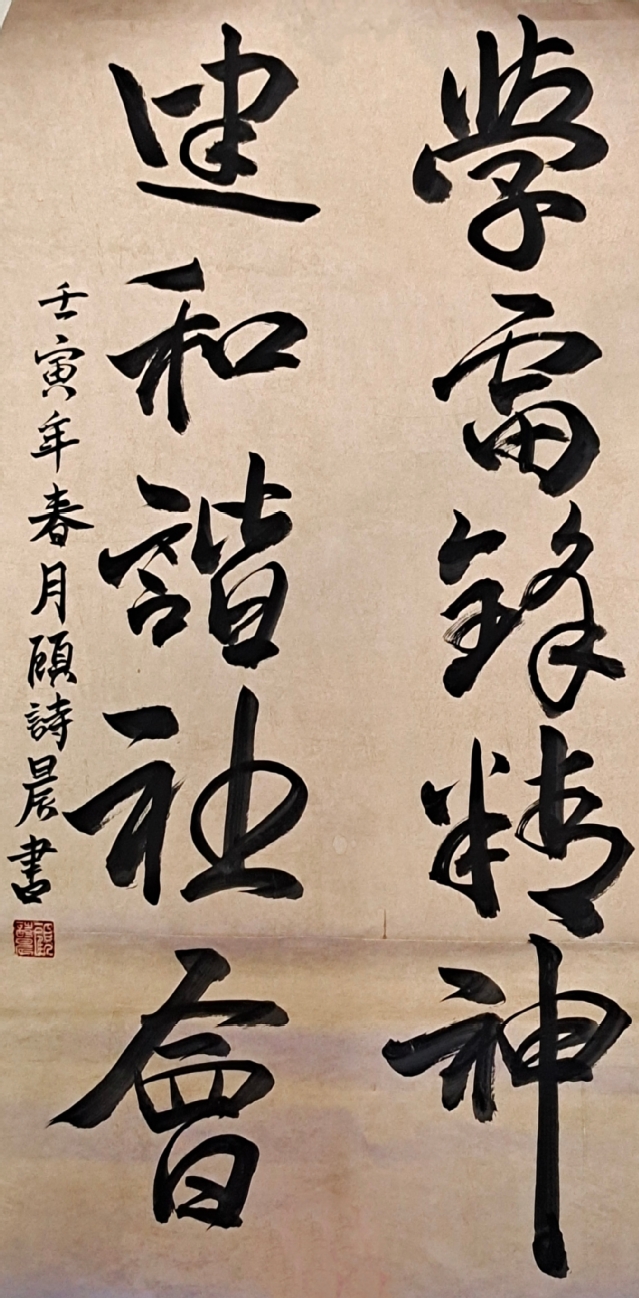 学雷鋒精神
建和諧社會
壬寅年春月顧詩晨書